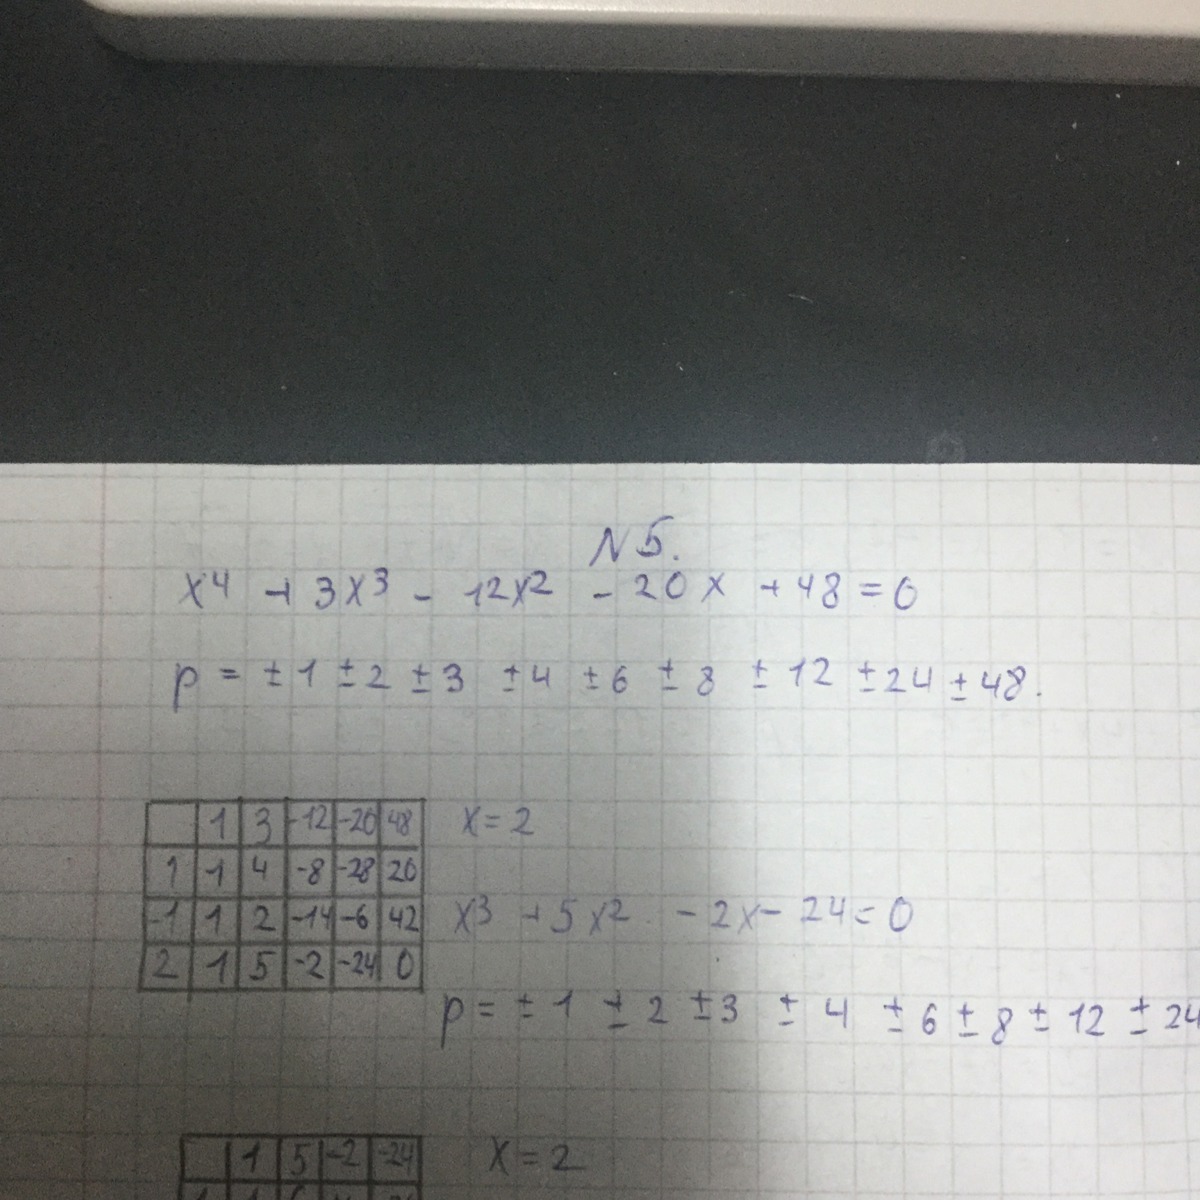 N 5.
x⁴ + 3x³ - 12x² - 20x + 48 = 0
p = ± 1 ± 2 ± 3 ± 4 ± 6 ± 8 ± 12 ± 24 ± 48.
1 3 -12 -20 48 x = 2
1 1 4 -8 -28 20
-1 1 2 -14 -6 42 x³ + 5x² - 2x - 24 = 0
2 1 5 -2 -24 0
p = ± 1 ± 2 ± 3 ± 4 ± 6 ± 8 ± 12 ± 24
1 5 -2 -24 x = 2